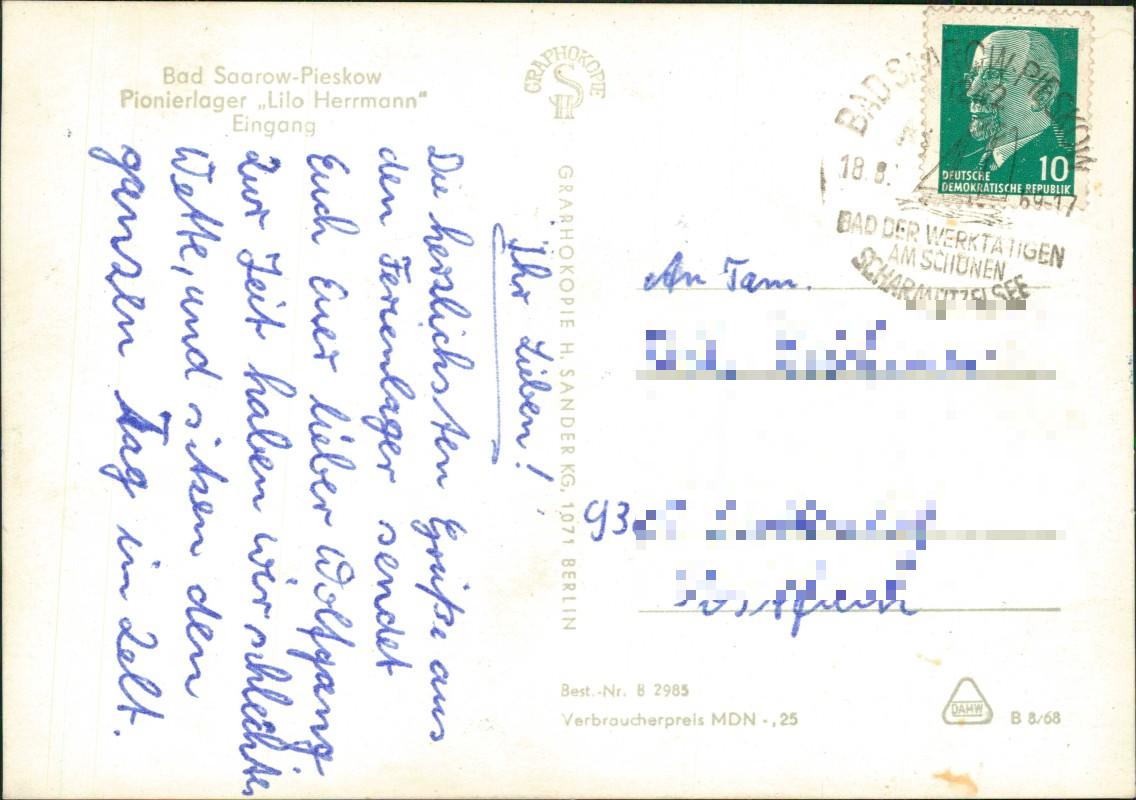 Bad Saarow-Pieskow
Pionierlager „Lilo Herrmann"
Eingang
GRAPHOKOPIE
H S
GRAPHOKOPIE H. SANDER KG, 1071 BERLIN
Ihr Lieben!
Die herzlichsten Grüße aus
den Ferienlager sendet
Euch Euer lieber Wolfgang
Zur Zeit haben wir schlechtes
Wette, und sitzen den
ganzen Tag im Zelt.
BAD SAAROW-PIESKOW
1242
18.8. 69-17
BAD DER WERKTÄTIGEN
AM SCHÖNEN
SCHARMÜTZELSEE
10
DEUTSCHE
DEMOKRATISCHE REPUBLIK
An Fam.
93
Best.-Nr. B 2985
Verbraucherpreis MDN -,25
DAMW
B 8/68